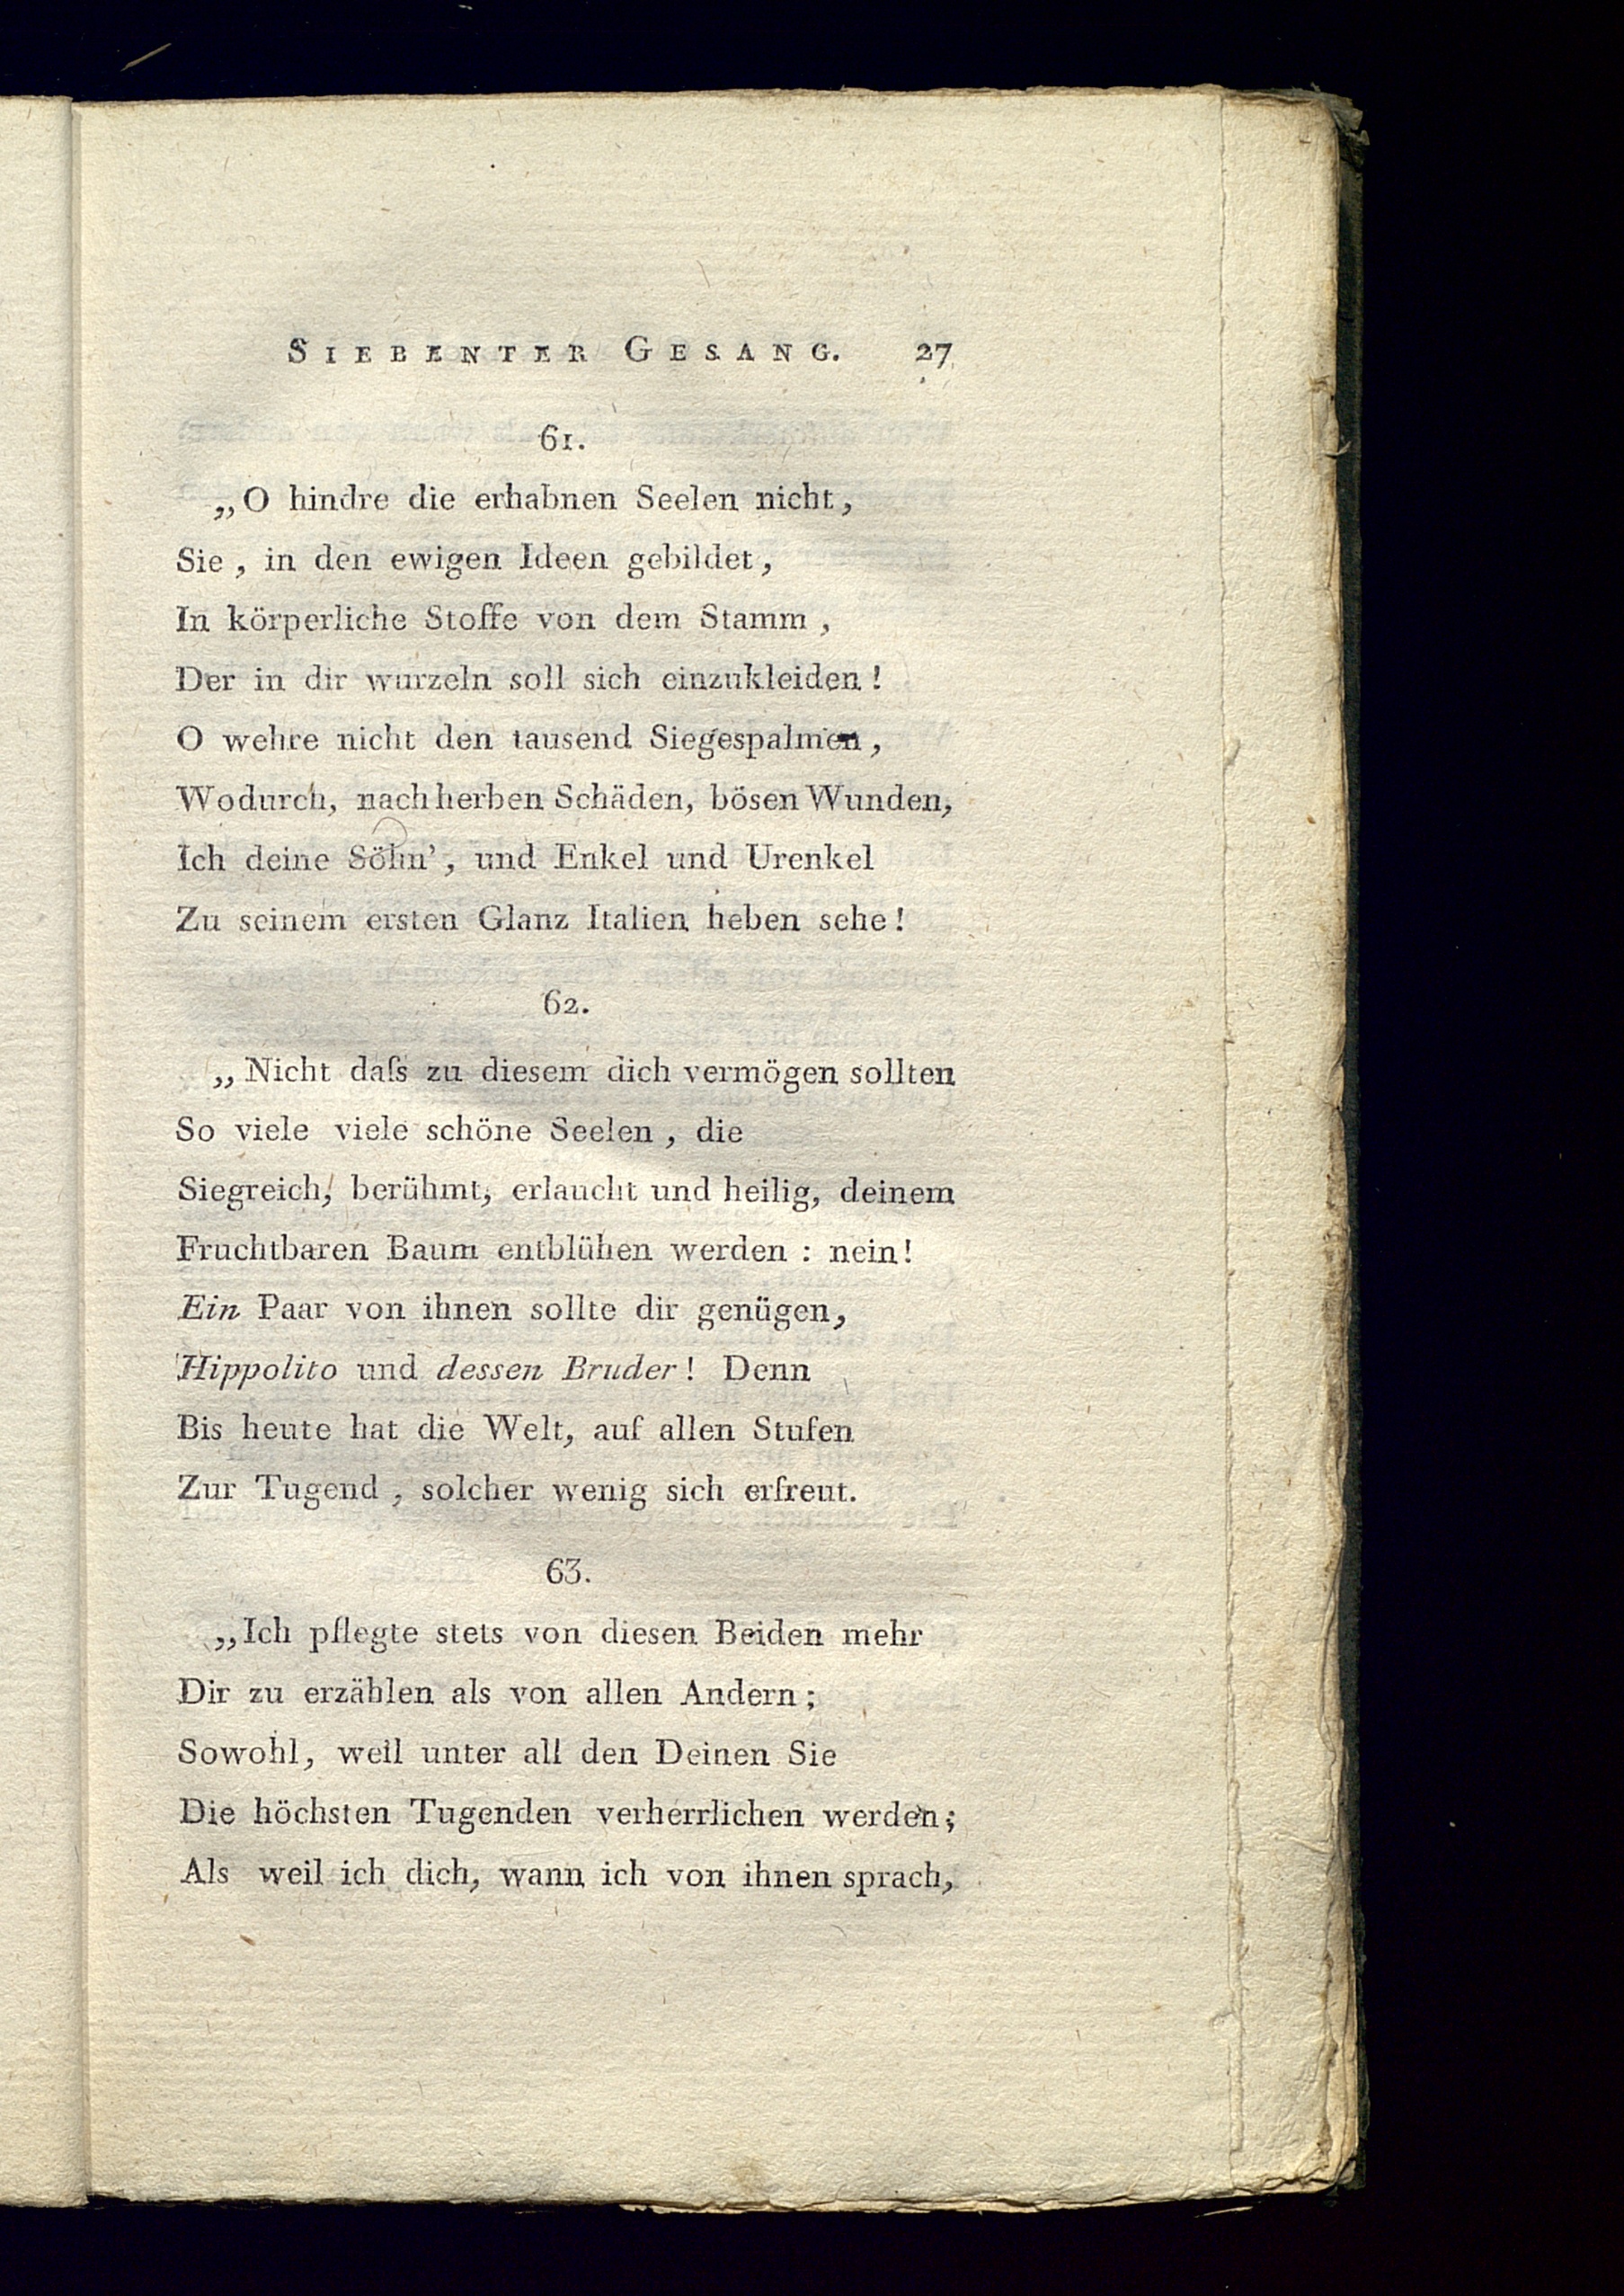 SIEBENTER GESANG. 27
61.
„O hindre die erhabnen Seelen nicht,
Sie, in den ewigen Ideen gebildet,
In körperliche Stoffe von dem Stamm,
Der in dir wurzeln soll sich einzukleiden!
O wehre nicht den tausend Siegespalmen,
Wodurch, nach herben Schäden, bösen Wunden,
Ich deine Söhn', und Enkel und Urenkel
Zu seinem ersten Glanz Italien heben sehe!
62.
„Nicht daſs zu diesem dich vermögen sollten
So viele viele schöne Seelen, die
Siegreich, berühmt, erlaucht und heilig, deinem
Fruchtbaren Baum entblühen werden: nein!
Ein Paar von ihnen sollte dir genügen,
Hippolito und dessen Bruder! Denn
Bis heute hat die Welt, auf allen Stufen
Zur Tugend, solcher wenig sich erfreut.
63.
„Ich pflegte stets von diesen Beiden mehr
Dir zu erzählen als von allen Andern;
Sowohl, weil unter all den Deinen Sie
Die höchsten Tugenden verherrlichen werden;
Als weil ich dich, wann ich von ihnen sprach,